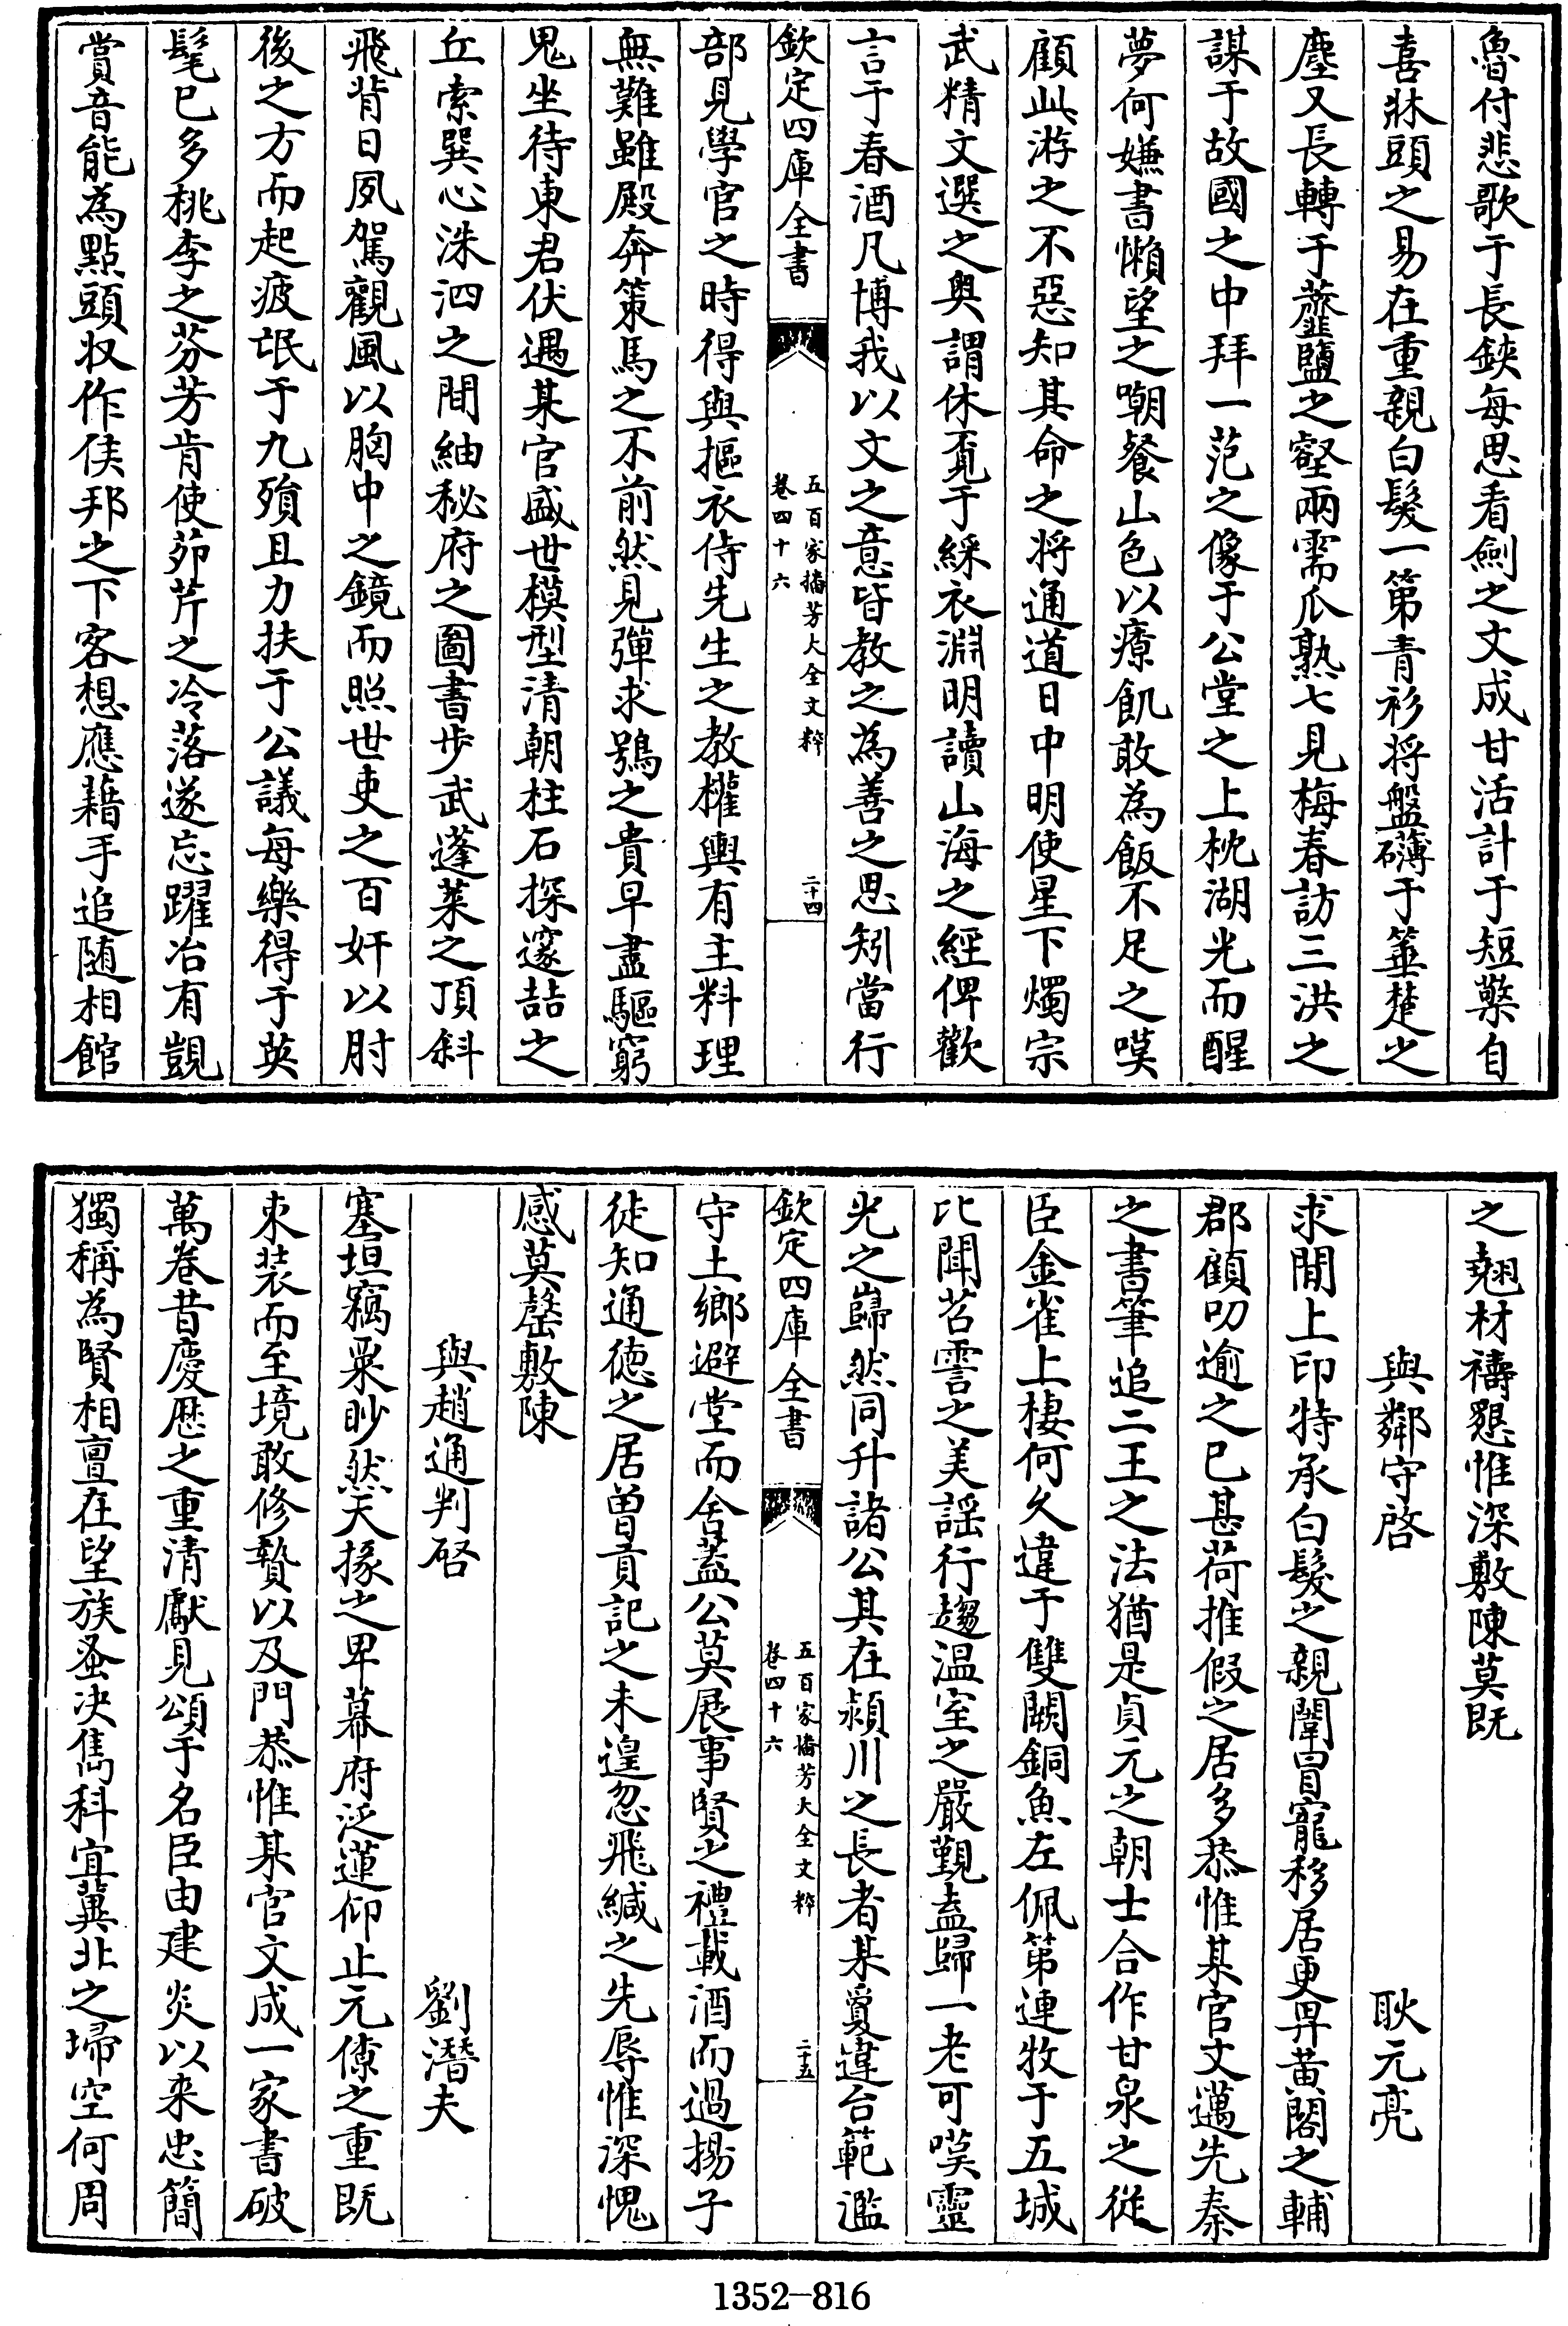 魯付悲歌于長鋏每思看劍之文成甘活計于短檠自
喜牀頭之易在重親白髮一第青衫將盤礴于箠楚之
塵又長轉于虀鹽之壑兩需瓜熟七見梅春訪三洪之
謀于故國之中拜一范之像于公堂之上枕湖光而醒
夢何嫌書懶望之嘲餐山色以療飢敢為飯不足之嘆
顧此游之不惡知其命之將通道日中明使星下燭宗
武精文選之奥謂休覔于綵衣淵明讀山海之經俾歡
言于春酒凡博我以文之意皆教之為善之思矧當行
欽定四庫全書
五百家播芳大全文粹
卷四十六
二十四
部見學官之時得與摳衣侍先生之教權輿有主料理
無難雖殿奔策馬之不前然見彈求鴞之貴早盡驅窮
鬼坐待東君伏遇某官盛世模型清朝柱石探邃喆之
丘索巽心洙泗之間紬秘府之圖書步武蓬萊之頂斜
飛背日夙駕觀風以胸中之鏡而照世吏之百奸以肘
後之方而起疲氓于九殞且力扶于公議每樂得于英
髦已多桃李之芬芳肯使茆芹之冷落遂忘躍冶有覬
賞音能為點頭収作侯邦之下客想應藉手追随相館
之翹材禱懇惟深敷陳莫既
與鄰守啓 耿元亮
求閒上印特承白髮之親闈冒寵移居更畀黄閣之輔
郡顧叨逾之已甚荷推假之居多恭惟某官文邁先秦
之書筆追二王之法猶是貞元之朝士合作甘泉之從
臣金雀上棲何久違于雙闕銅魚左佩第連牧于五城
比聞苕霅之美謡行趨温室之嚴覲盍歸一老可嘆靈
光之巋然同升諸公其在潁川之長者某爰違台範濫
欽定四庫全書
五百家播芳大全文粹
卷四十六
二十五
守土鄉避堂而舍蓋公莫展事賢之禮載酒而過揚子
徒知通德之居曾貢記之未遑忽飛緘之先辱惟深愧
感莫罄敷陳
與趙通判啓 劉潛夫
塞垣竊粟眇然天掾之卑幕府泛蓮仰止元僚之重既
束装而至境敢修贄以及門恭惟某官文成一家書破
萬巻昔慶歴之重清獻見頌于名臣由建炎以来忠簡
獨稱為賢相亶在望族蚤决雋科宜冀北之埽空何周
1352-816